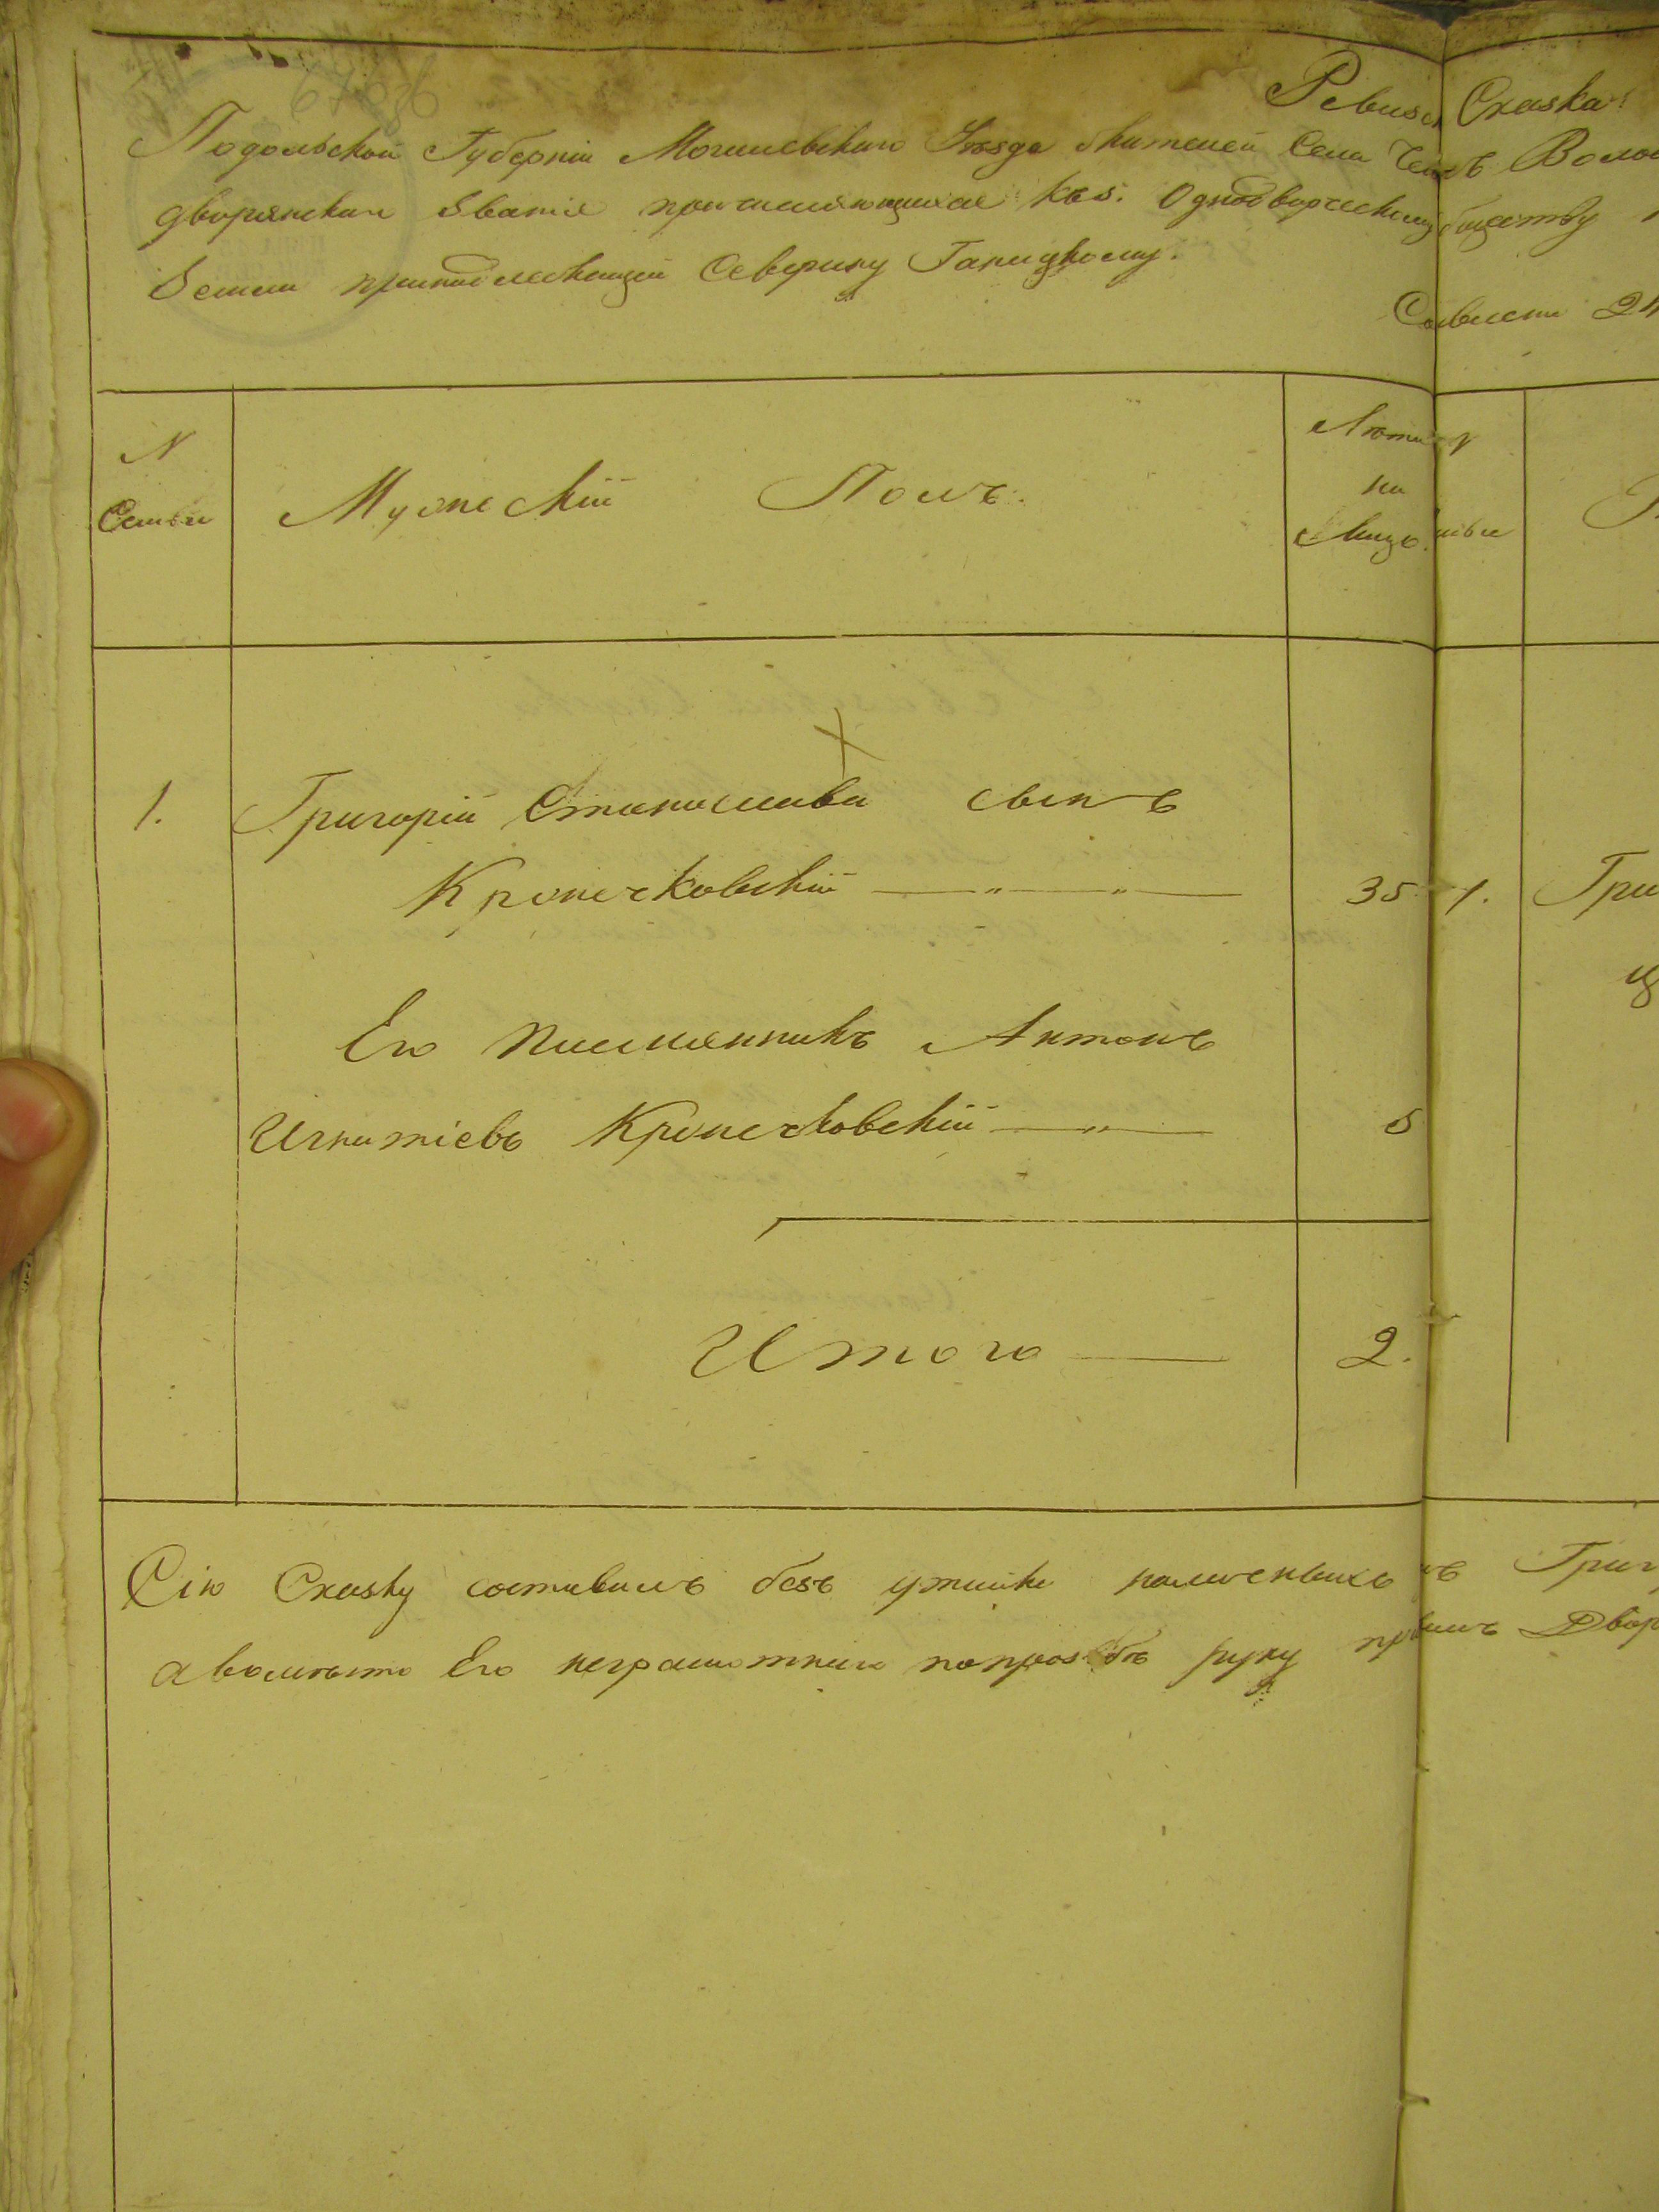 Ревизс Сказка
Подольской Губерніи Могилевскаго Уѣзда жителей Села
дворянскаго званія причисляющихся къ 5. Однодворческому бществу
Земли принадлежащей Северину Галицкому.
N
Семьи
Мужескій Полъ.
Лѣта
на
Лицо
1. Григорій Станислава сынъ
Кропечковскій — „ — „ — 35 1. Гри
Его племянникъ Антонъ
Игнатіевъ Кропечковскій — „ — 5
Итого — 2.
Сію Сказку составилъ безъ утайки наличныхъ Григ
авомѣсто Его неграмотнаго попрозбѣ руку Двор